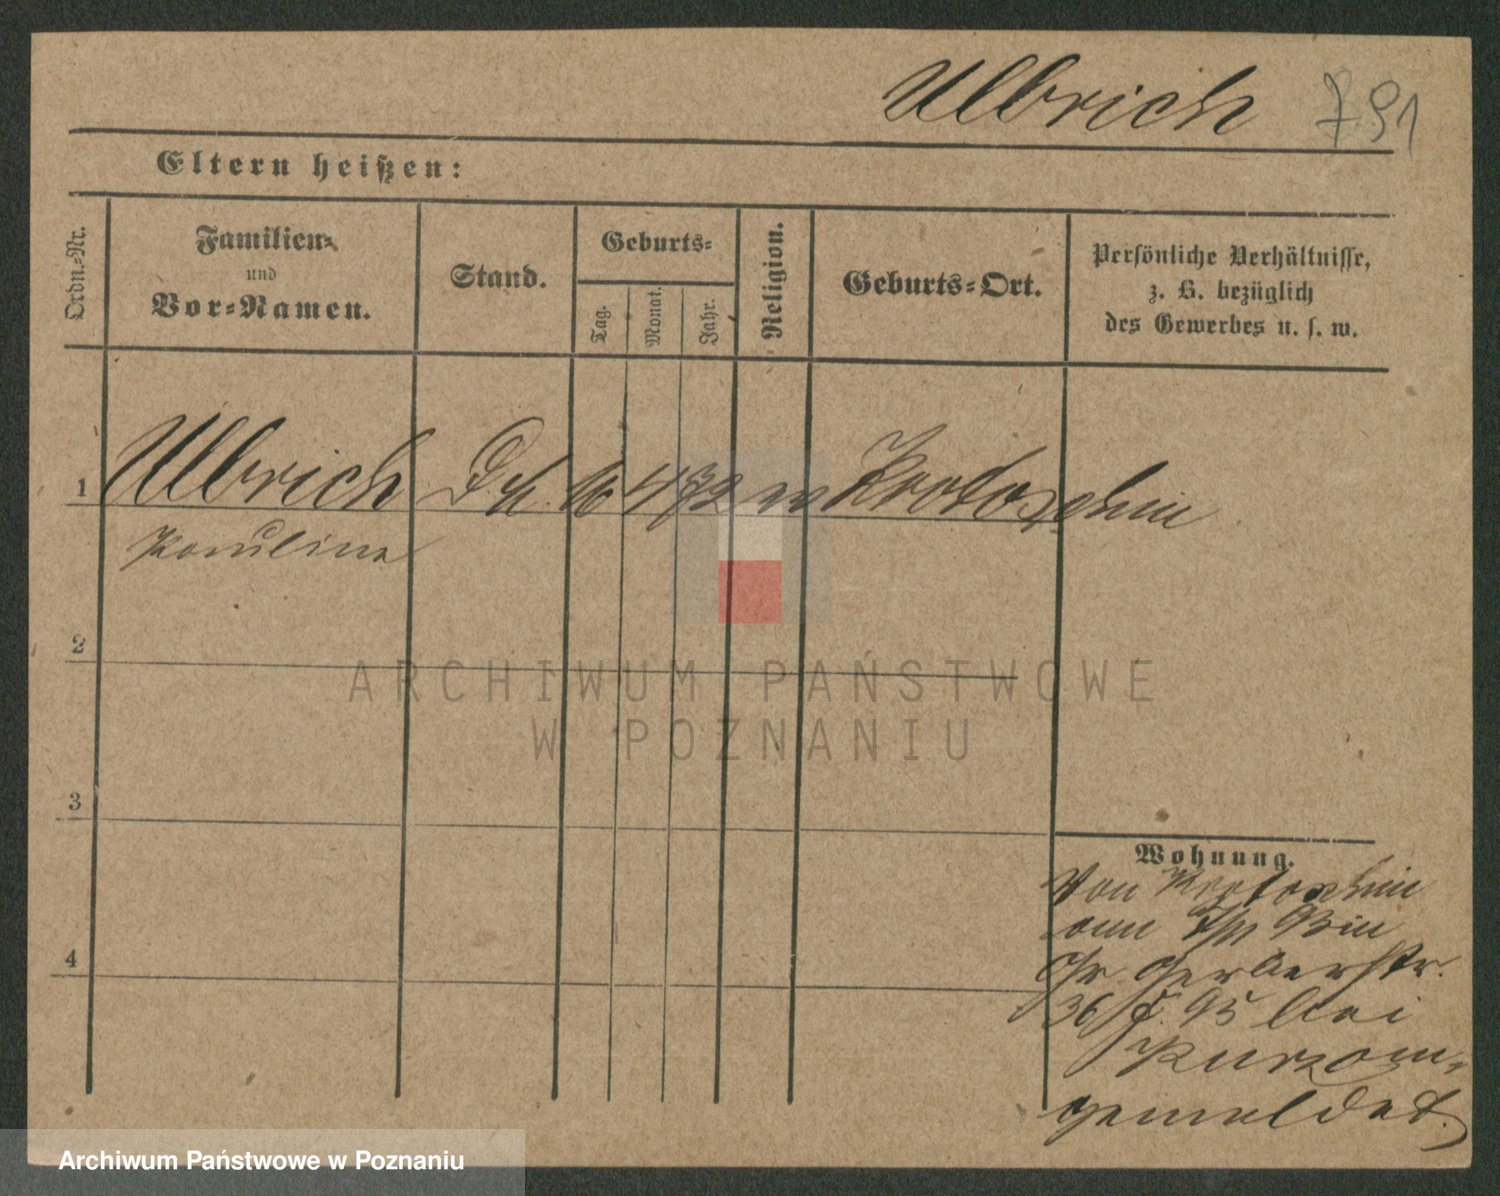 Ulbrich 791
Eltern heißen:
Ordn.-Nr.
Familien-
und
Vor-Namen.
Stand.
Geburts-
Tag.
Monat.
Jahr.
Religion.
Geburts-Ort.
Persönliche Verhältnisse,
z. B. bezüglich
des Gewerbes u. s. w.
1 Ulbrich 16 4 72 Krotoschin
Paulina
2
3
4
Wohnung.
Von Krotoschin
Gr. Gerberstr.
36 95 bei
gemeldet.
ARCHIWUM PAŃSTWOWE
W POZNANIU
Archiwum Państwowe w Poznaniu